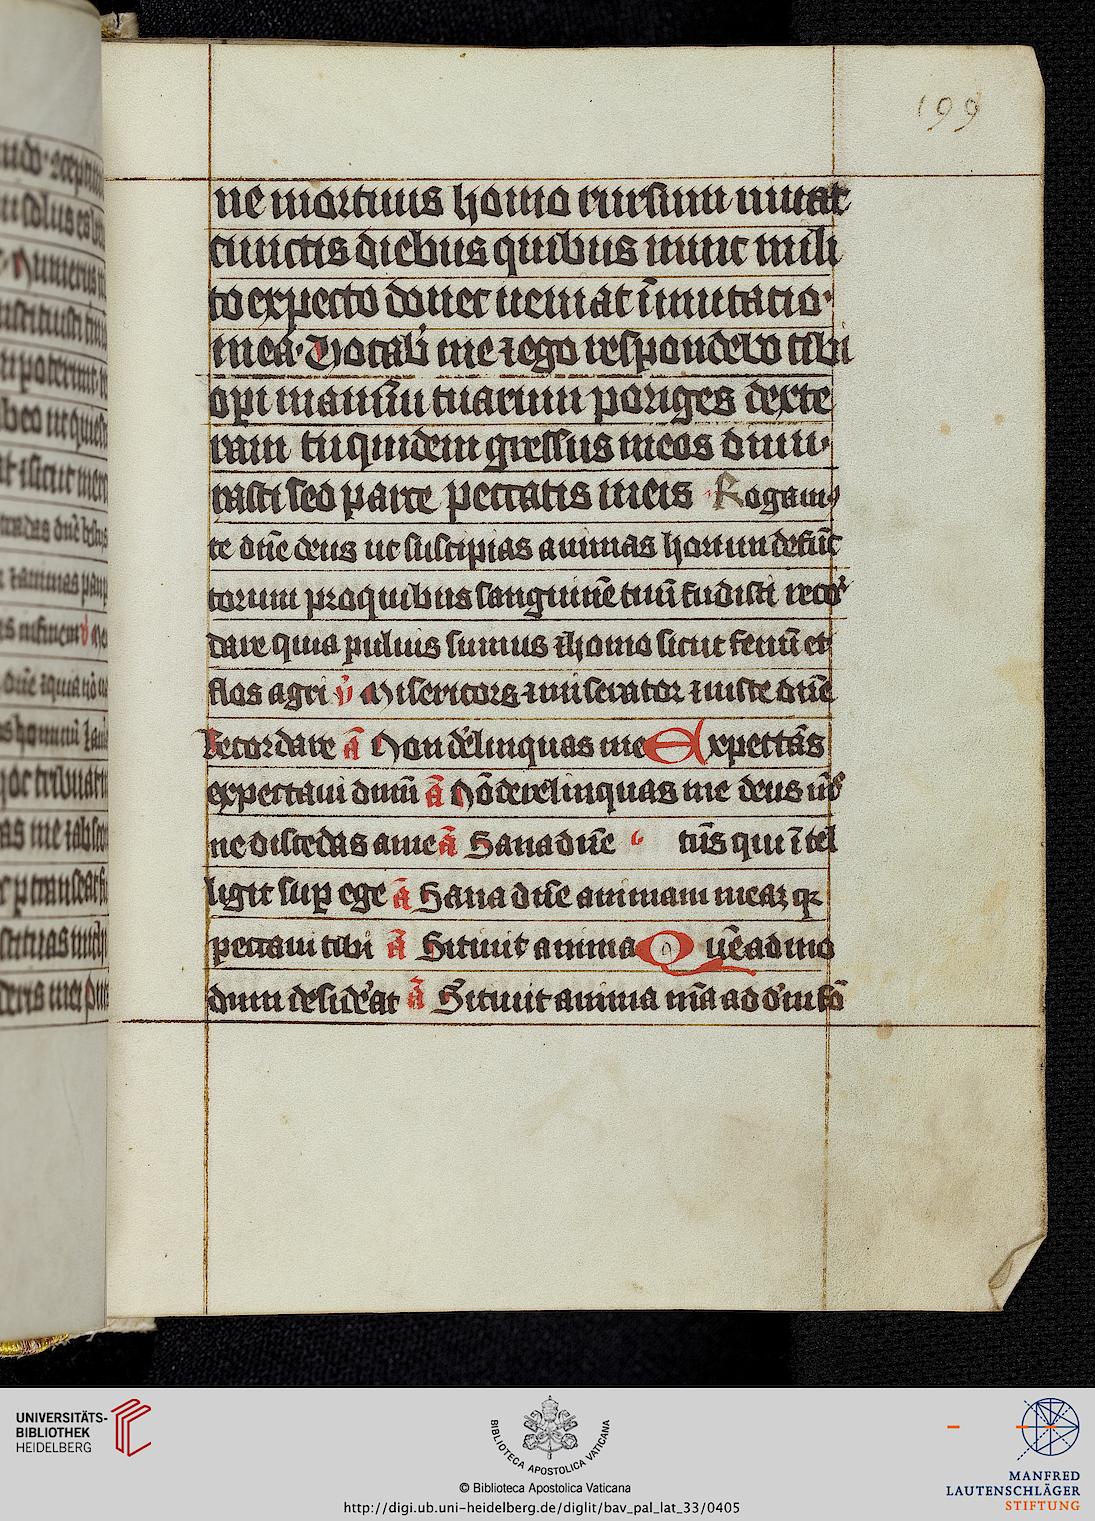 199
ne mortuus homo rursum uiuat
cunctis diebus quibus nunc mili
to expecto donec ueniat īmutatio
mea· Vocab' me ⁊ ego respondebo tibi
opi manuū tuarum poriges dexte
ram tu quidem gressus meos dinu·
rasti sed parce peccatis meis Rogamꝰ
te dn̄e deus ut suscipias animas horum defūc
torum pro quibus sanguinē tuū fudisti recor
dare quia puluis sumus ⁊ homo sicut fenū et
flos agri v̄ Misericors ⁊ miserator ⁊ iuste dn̄e
Recordare ā Non d'linquas me Expectās
expectaui dnm̄ ā Nō derelinquas me deus
ne discedas a me ā Sana dn̄e tūs qui ītel
ligit suꝑ ege ā Sana dn̄e animam meaꝫ
peccaui tibi ā Sitiuit anima Quēadmo
dum desid'at ā Sitiuit anima mā ad d'm fō
UNIVERSITÄTS-
BIBLIOTHEK
HEIDELBERG
BIBLIOTECA APOSTOLICA VATICANA
© Biblioteca Apostolica Vaticana
http://digi.ub.uni-heidelberg.de/diglit/bav_pal_lat_33/0405
MANFRED
LAUTENSCHLÄGER
STIFTUNG